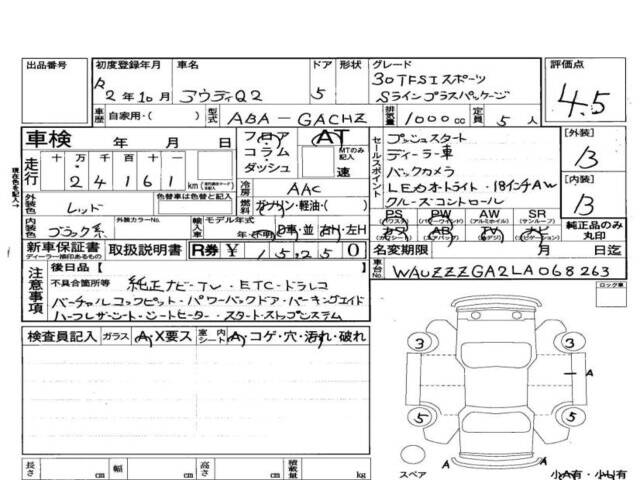 出品番号
初度登録年月
R2年10月
車名
アウディQ2
ドア
5
形状
グレード
30TFSIスポーツ
Sラインプラスパッケージ
評価点
4.5
車歴 自家用・( )
型式 ABA-GACHZ
排気量 1000cc
定員 5人
車検 年 月 日
フロア・コラム・ダッシュ
AT
MTのみ記入
速
セールスポイント
プッシュスタート
ディーラー車
バックカメラ
LEDオートライト・18インチAW
クルーズコントロール
[外装]
B
[内装]
B
走行 十 万 千 百 十 一
24161km
冷房 AAC
外装色 レッド
色替車は色替と記入
燃料 ガソリン・軽油・( )
内装色 ブラック系
外装カラーNo.
輸入車
モデル年式
年・不明
D車・並
右H・左H
PS
PW
AW
SR
(サンルーフ)
純正品のみ丸印
新車保証書
取扱説明書
R券 ¥15,250
ディーラー捺印あるもの
名変期限 年 月 日迄
車台No. WAUZZZGA2LA068263
ロック車
現在色を記入→
注意事項
後日品[ ]
不具合箇所等
純正ナビ-TV・ETC・ドラレコ
バーチャルコックピット・パワーバックドア・パーキングエイド
ハーフレザーシート・シートヒーター・スタートストップシステム
検査員記入
ガラス A・X要ス
室内シート A・コゲ・穴・汚れ・破れ
3
3
A
5
5
A
スペア
小A有・小U有
長さ cm
幅 cm
高さ cm
積載量 kg